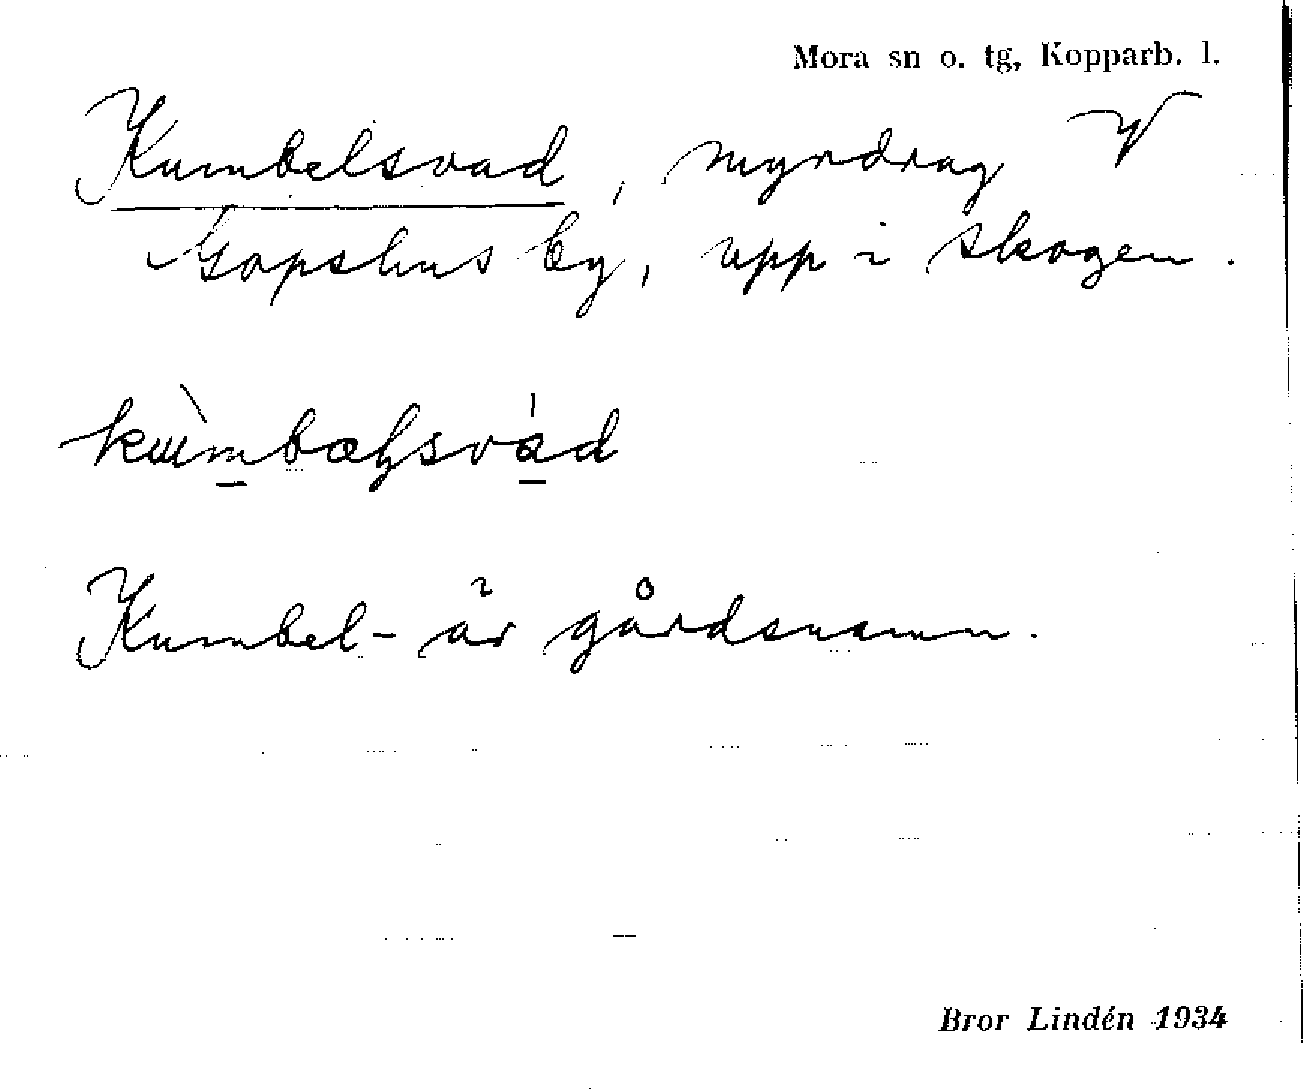 Mora sn o. tg, Kopparb. l.
Kumbelsvad, myrdrag V
Gopshus by, upp i skogen.
Kumbel- är gårdsnamn.
Bror Lindén 1934